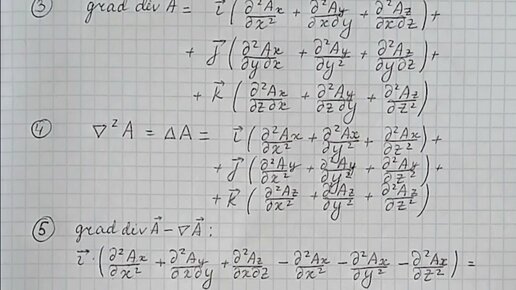 ③ grad div A = i⃗ (∂²Ax/∂x² + ∂²Ay/∂x∂y + ∂²Az/∂x∂z) +
+ j⃗ (∂²Ax/∂y∂x + ∂²Ay/∂y² + ∂²Az/∂y∂z) +
+ k⃗ (∂²Ax/∂z∂x + ∂²Ay/∂z∂y + ∂²Az/∂z²)
④ ∇²A = ΔA = i⃗ (∂²Ax/∂x² + ∂²Ax/∂y² + ∂²Ax/∂z²) +
+ j⃗ (∂²Ay/∂x² + ∂²Ay/∂y² + ∂²Ay/∂z²) +
+ k⃗ (∂²Az/∂x² + ∂²Az/∂y² + ∂²Az/∂z²)
⑤ grad div A⃗ - ∇A⃗ :
i⃗ · (∂²Ax/∂x² + ∂²Ay/∂x∂y + ∂²Az/∂x∂z - ∂²Ax/∂x² - ∂²Ax/∂y² - ∂²Ax/∂z²) =